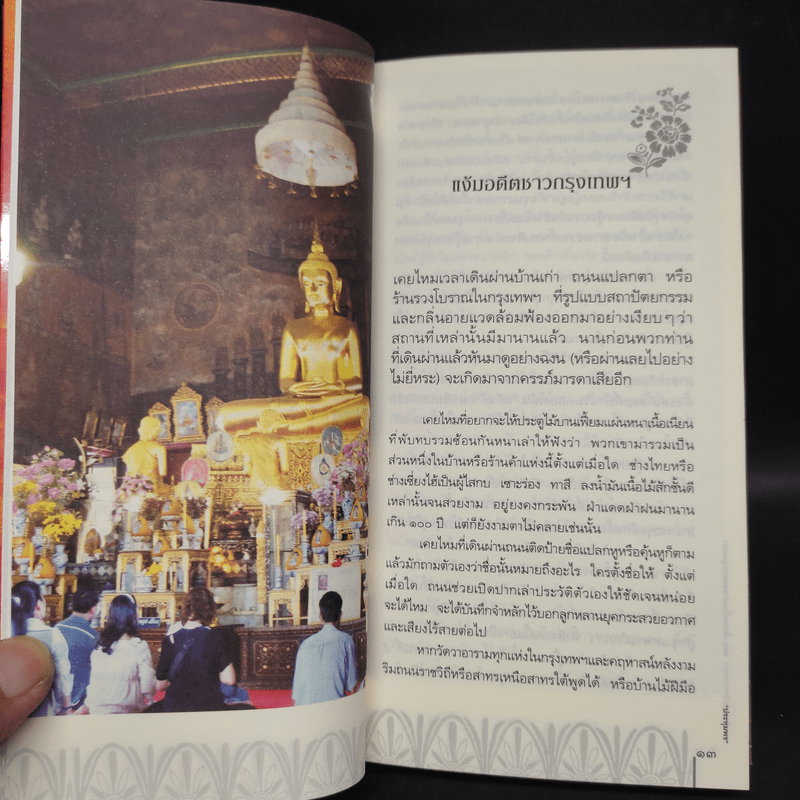 แง้มอดีตชาวกรุงเทพฯ
เคยไหมเวลาเดินผ่านบ้านเก่า ถนนแปลกตา หรือ
ร้านรวงโบราณในกรุงเทพฯ ที่รูปแบบสถาปัตยกรรม
และกลิ่นอายแวดล้อมฟ้องออกมาอย่างเงียบๆว่า
สถานที่เหล่านั้นมีมานานแล้ว นานก่อนพวกท่าน
ที่เดินผ่านแล้วหันมาดูอย่างฉงน (หรือผ่านเลยไปอย่าง
ไม่ยี่หระ) จะเกิดมาจากครรภ์มารดาเสียอีก
เคยไหมที่อยากจะให้ประตูไม้บานเฟี้ยมแผ่นหนาเนื้อเนียน
ที่พับทบรวมซ้อนกันหนาเล่าให้ฟังว่า พวกเขามารวมเป็น
ส่วนหนึ่งในบ้านหรือร้านค้าแห่งนี้ตั้งแต่เมื่อใด ช่างไทยหรือ
ช่างเซี่ยงไฮ้เป็นผู้ไสกบ เซาะร่อง ทาสี ลงน้ำมันเนื้อไม้สักชั้นดี
เหล่านั้นจนสวยงาม อยู่ยงคงกระพัน ฝ่าแดดฝ่าฝนมานาน
เกิน ๑๐๐ ปี แต่ก็ยังงามตาไม่คลายเช่นนั้น
เคยไหมที่เดินผ่านถนนติดป้ายชื่อแปลกหูหรือคุ้นหูก็ตาม
แล้วมักถามตัวเองว่าชื่อนั้นหมายถึงอะไร ใครตั้งชื่อให้ ตั้งแต่
เมื่อใด ถนนช่วยเปิดปากเล่าประวัติตัวเองให้ชัดเจนหน่อย
จะได้ไหม จะได้บันทึกจำหลักไว้บอกลูกหลานยุคกระสวยอวกาศ
และเสียงไร้สายต่อไป
หากวัดวาอารามทุกแห่งในกรุงเทพฯและคฤหาสน์หลังงาม
ริมถนนราชวิถีหรือสาทรเหนือสาทรใต้พูดได้ หรือบ้านไม้ฝีมือ
"ประทุมพร"
๑๓